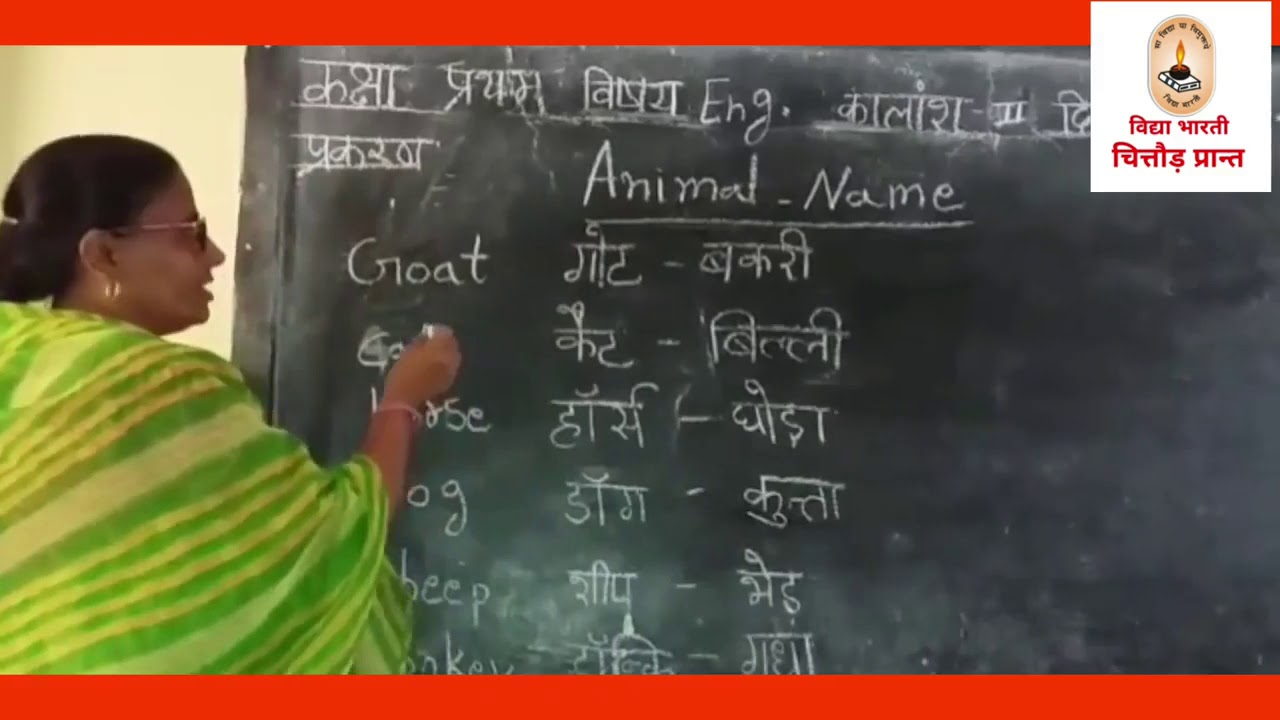 कक्षा प्रथम विषय Eng. कालांश-III दि
प्रकरण
Animal - Name
Goat गोट - बकरी
कैट - बिल्ली
हॉर्स - घोड़ा
डॉग - कुत्ता
शीप - भेड़
डॉन्कि - गधा
सा विद्या या विमुक्तये
विद्या भारती
विद्या भारती
चित्तौड़ प्रान्त